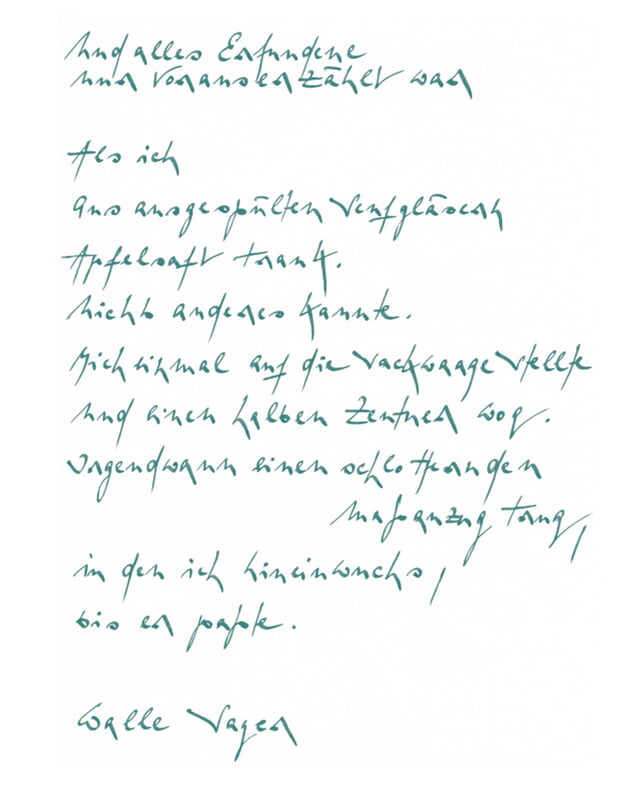 Und alles Erfundene
nur vorauserzählt war
Als ich
aus ausgespülten Senfgläsern
Apfelsaft trank.
Nichts anderes kannte.
Mich einmal auf die Sackwaage stellte
und einen halben Zentner wog.
Irgendwann einen schlotternden
Maßanzug trug,
in den ich hineinwuchs,
bis er paßte.
Walle Sayer